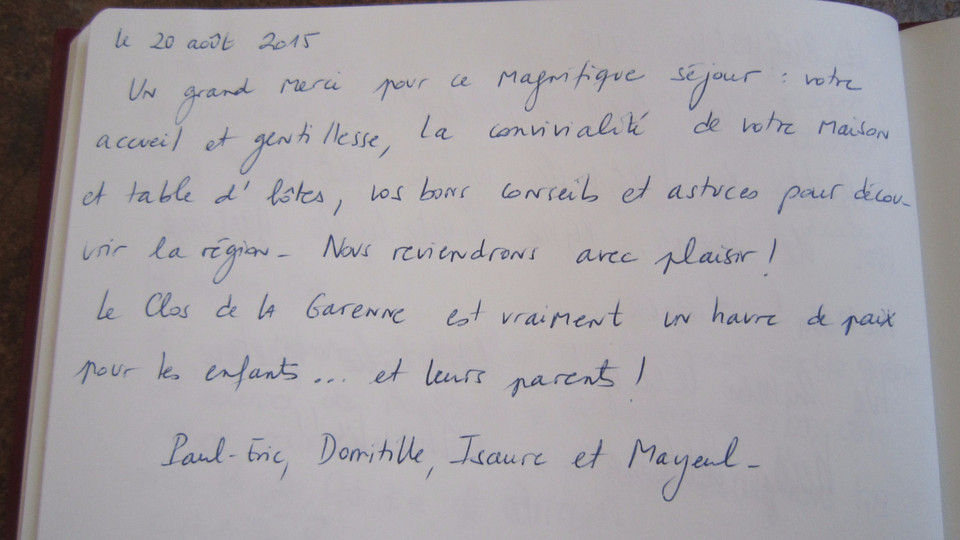 le 20 août 2015
Un grand merci pour ce magnifique séjour : votre
accueil et gentillesse, la convivialité de votre maison
et table d'hôtes, vos bons conseils et astuces pour décou-
vrir la région - Nous reviendrons avec plaisir !
Le Clos de la Garenne est vraiment un havre de paix
pour les enfants ... et leurs parents !
Paul-Eric, Domitille, Isaure et Mayeul -